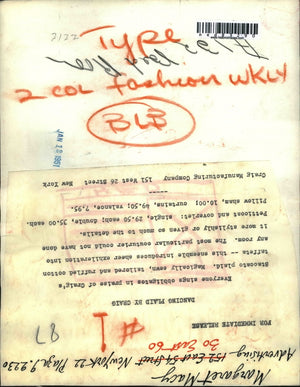 2122
Type
2 COL fashion WKLY
BLB
JAN 22 1961
Margaret Macy
Advertising
152 East 54 Street New York 22 Plaza 9.2230
30 East 60
# 1
87
FOR IMMEDIATE RELEASE
DANCING PLAID BY CRAIG
Everyone sings obligatos in praise of Craig's
Staccato Plaid. Magically woven, tailored and ruffled cotton
taffeta -- this ensemble harbors sheer exhiliration into
any room. The most particular couturier could not have done
it more stylishly or given so much to the details.
Petticoat and coverlet: single, 29.50; double, 35.00 each.
Pillow sham, 10.00; curtains, 49.50; valance, 7.95.
Craig Manufacturing Company 151 West 26 Street New York